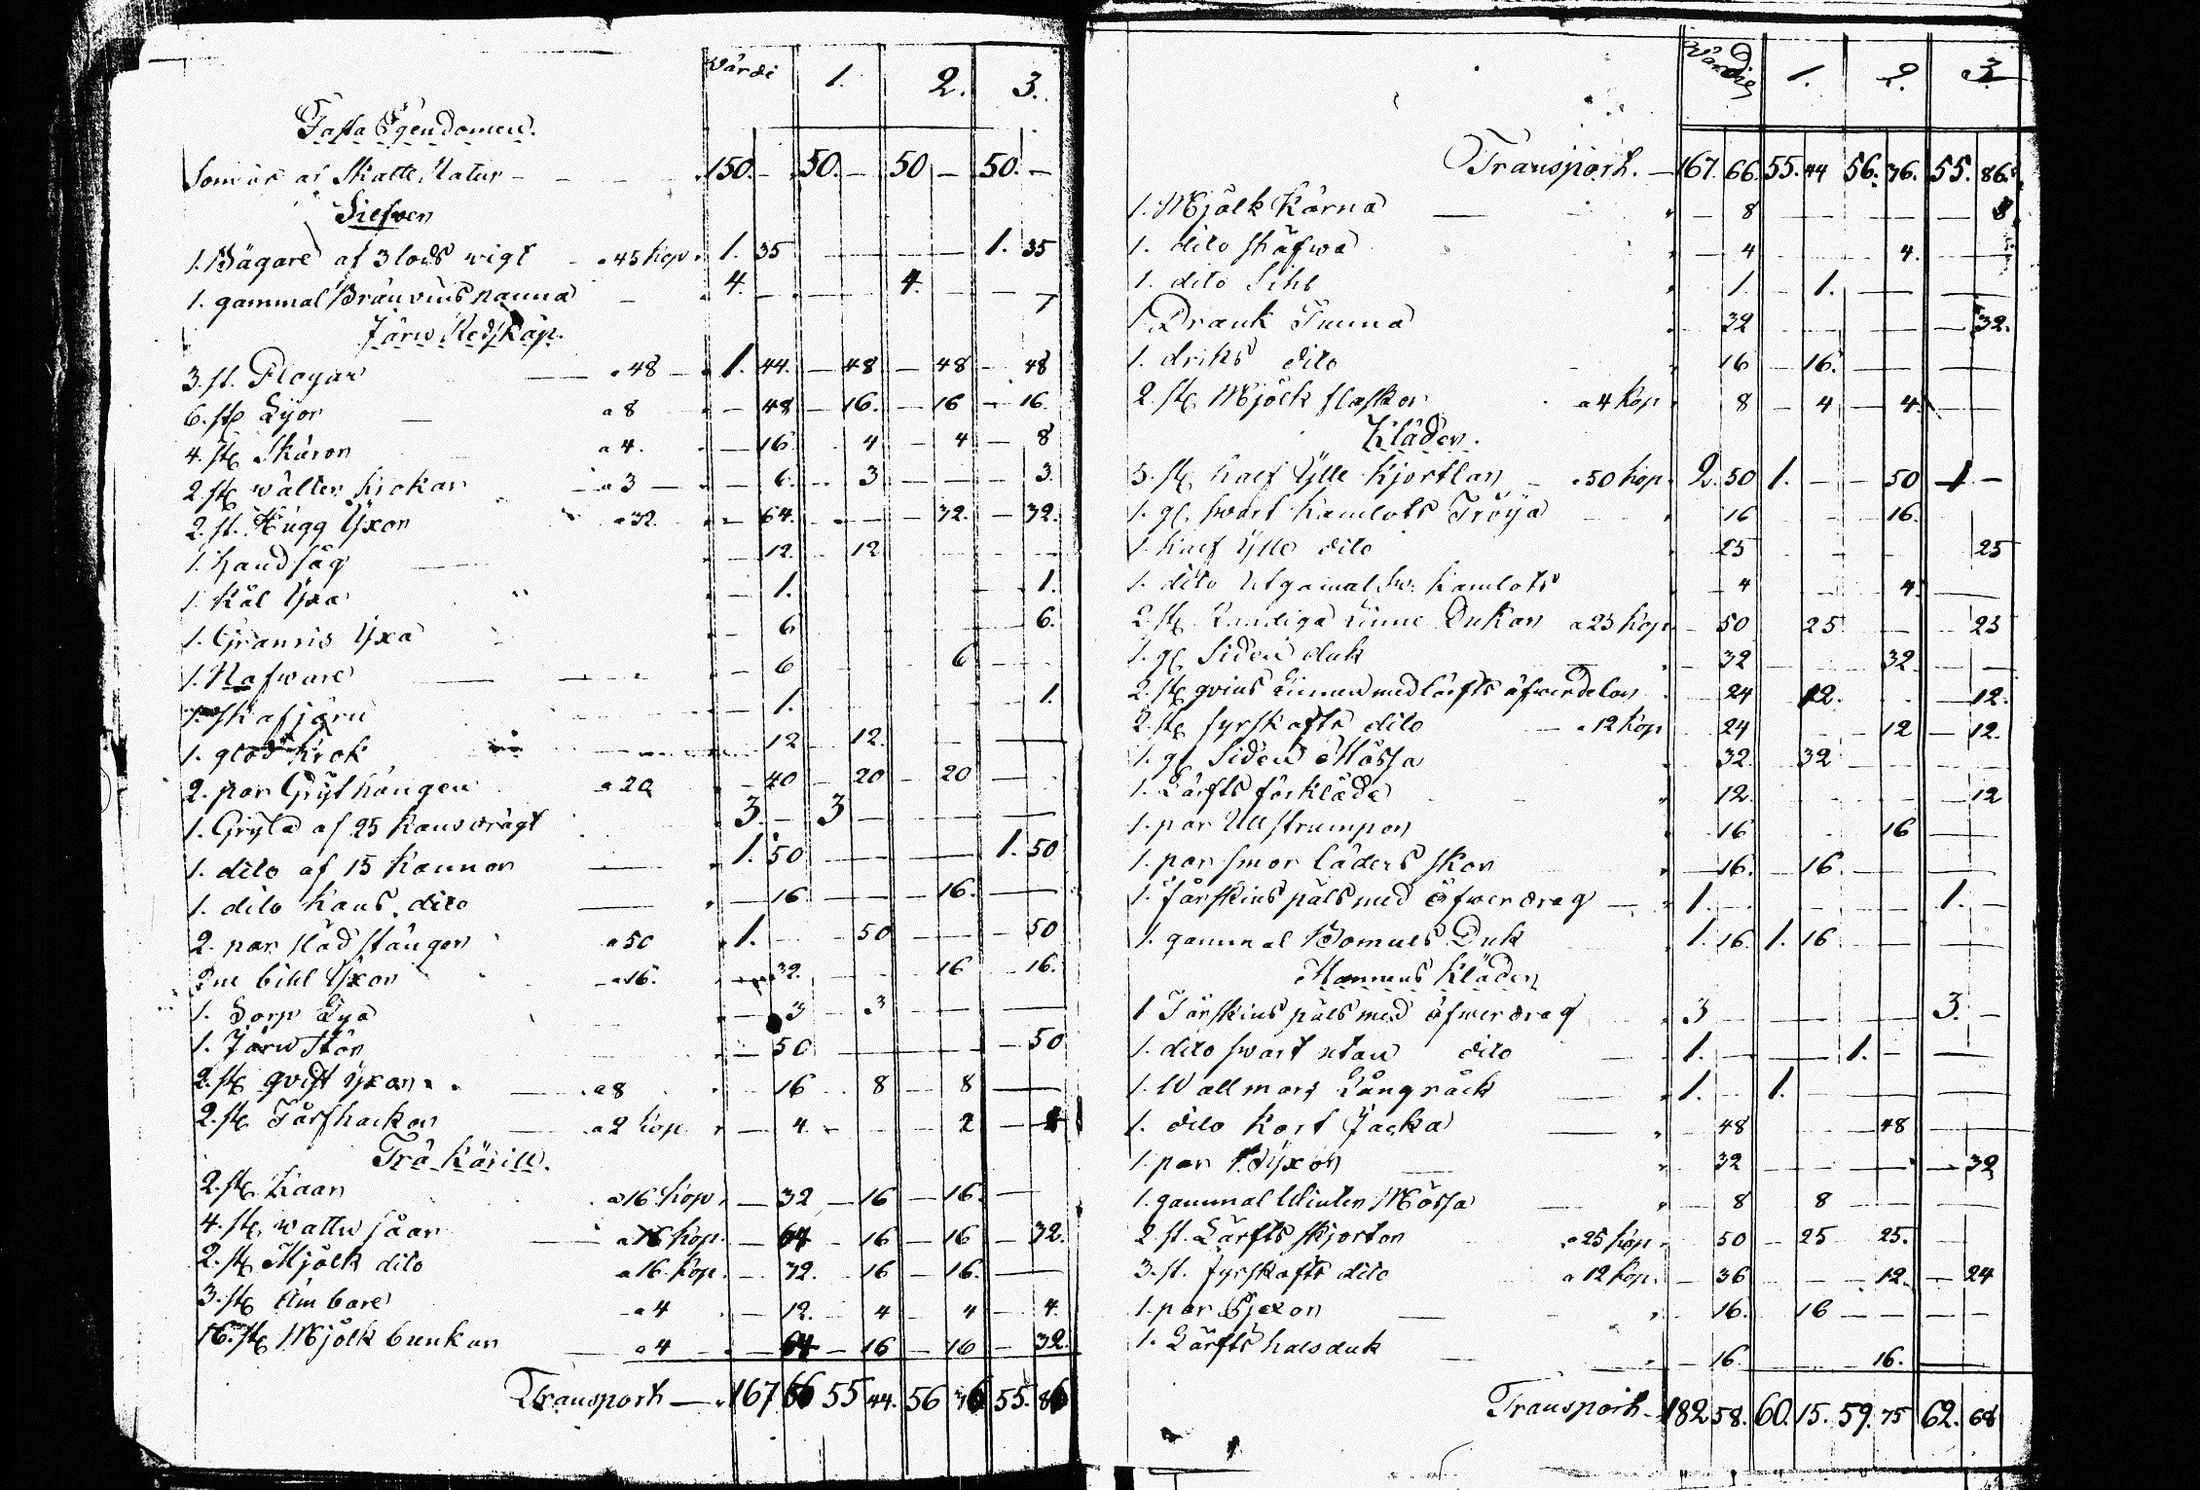 Värde 1. 2. 3.
Fasta Egendomen.
Som är af Skatte Natur - 150. - 50. - 50 - 50. -
Silfver
1. Bägare af 3 lods wigt a 45 kop 1. 35 - - - - 1. 35
1. gammal Bränvins panna 4. - - - 4. - - -
Järn Redskap.
3. st. Plogar a 48 1. 44. - 48 - 48 - 48
6. st. Lyor a 8 - 48 - 16. - 16 - 16.
4. st. Skäror a 4. - 16 4 - 4 - 8
2. st. wälter krokar a 3 - 6. 3 - - - 3.
2. st. Hugg Yxor a 32. - 64. - - - 32. - 32.
1. handsåg - 12. 12 - - - -
1. Kål Yxa - 1. - 1.
1. Granris Yxa - 6 6.
1. Nafware - 6 6 - -
1. Skafjärn - 1. 1.
1. glöd krok 12 - 12. - - -
2. par Grythängen a 20 - 40 - 20 - 20 -
1. Gryta af 25 kans drägt 3. - 3 - - - -
1. dito af 15 kannor 1. 50 - - 1. 50
1. dito kans dito - 16 - - 16. -
2. par släd stänger a 50 1. - - 50 - - - 50
2ne bihl Yxor a 16. - 32. - - 16 - 16.
1. Torp Lya - 3 - 3 - - -
1. Järn Stör - 50 - - - - 50
2. st. qvist yxor a 8 16 8 - 8 -
2. st. Torfhackor a 2 kop - 4 - - - 2 -
Trä Kärill.
2. st. Kaar a 16 kop - 32 - 16 - 16. -
4. st. wattu såar a 16 kop. - 64 - 16 - 16 - 32.
2. st. Mjölk dito a 16 kop. - 32. 16 - 16. -
3. st. Ämbare a 4 - 12. - 4 - 4 - 4.
16. st. Mjölk bunkar a 4 - 64 - 16 - 16 - 32.
Transport - 167 66 55 44. 56 76 55. 86
Värde 1. 2. 3.
Transport. - 167. 66. 55. 44 56. 76. 55. 86.
1. Mjölk Kärna - 8 - - - 8
1. dito skäfwa - 4 4. - -
1. dito Sihl 1. 1. - - -
1 Drank Tunna 32 - - - - 32.
1. driks dito 16 - 16. - - -
2. st. Mjölk flaskor a 4 kop 8 - 4 - 4. - -
Kläder.
3. st. half Ylle Kjortlar a 50 kop. 2. 50 1. - - 50 - 1 -
1. gl. swart kamlots Tröja 16 - 16.
1. half Ylle dito 25 - - - 25
1. dito Utgamal sw. kamlots - 4 4.
2. st. Randiga Linne Dukar a 25 kop - 50 25 - 25
1. gl. Siden duk - 32 - - 32. - -
2. st. qvins Linnen med lärfts öfwerdelar 24 12. 12.
2. st. fyrskafts dito a 12 kop 24 - 12 - 12.
1. gl. Siden Mössa 32. 32 - - -
1. Lärfts förkläde 12. - - - 12
1. par Ullstrumpor - 16 16 -
1. par smor läders skor - 16. - 16. - - -
1. Fårskins päls med öfwerdrag 1. - - - - 1. -
1. gammal Bomuls Duk 1. 16. 1. 16 - - -
Mannens Kläder
1 Fårskins päls med öfwerdrag 3 - - - - 3. -
1. dito swart utan dito 1. - - - 1. - -
1. Wallmars Långråck 1. - 1. - - - -
1. dito kort Jacka - 48 - 48 -
1. par Byxor - 32 - - - - 32
1. gammal Winter Mössa - 8 8 - - -
2. st. Lärfts skjortor a 25 kop. 50 - 25 25. -
3. st. fyrskafts dito a 12 kop. - 36 - - - 12. - 24
1. par Byxor - 16. 16 - - - -
1. Lärfts halsduk - 16. - - 16. -
Transport 182 58. 60. 15. 59. 75 62. 68